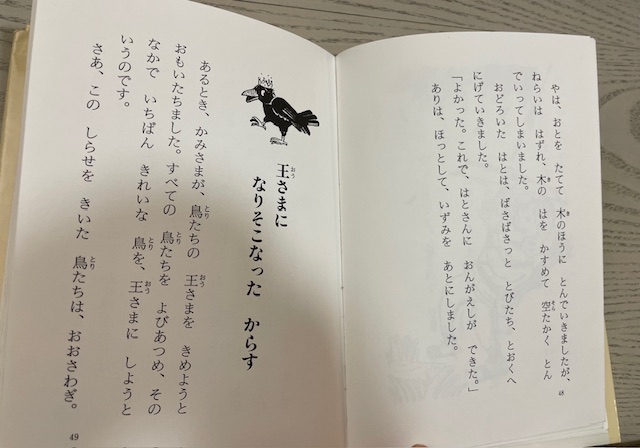 やは、おとを　たてて　木のほうに　とんでいきましたが、
ねらいは　はずれ、木の　はを　かすめて　空たかく　とん
でいってしまいました。
おどろいた　はとは、ばさばさっと　とびたち、とおくへ
にげていきました。
「よかった。これで、はとさんに　おんがえしが　できた。」
ありは、ほっとして、いずみを　あとにしました。
48
王さまに
なりそこなった　からす
あるとき、かみさまが、鳥たちの　王さまを　きめようと
おもいたちました。すべての　鳥たちを　よびあつめ、その
なかで　いちばん　きれいな　鳥を、王さまに　しようと
いうのです。
さあ、この　しらせを　きいた　鳥たちは、おおさわぎ。
49